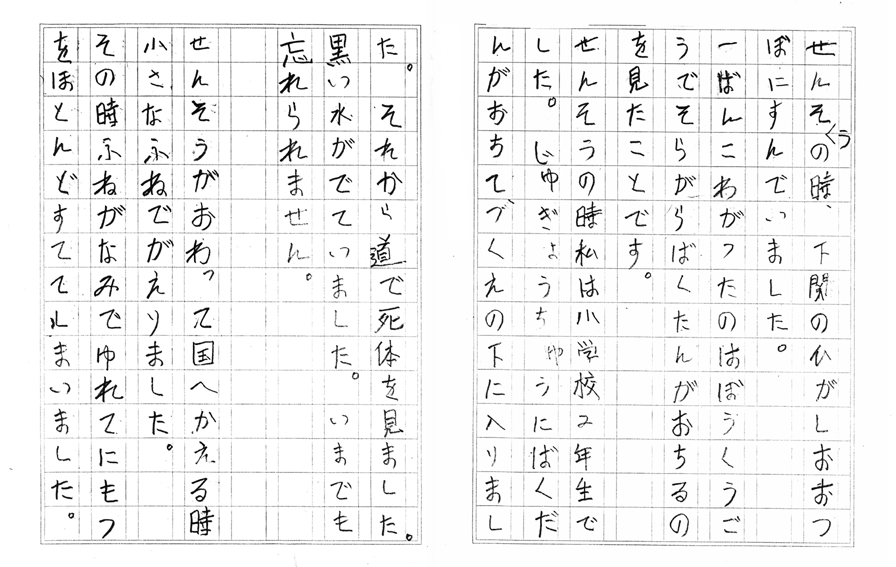 せんそうの時、下関のひがしおおつ
ぼにすんでいました。
一ばんこわがったのはぼうくうご
うでそらがらばくたんがおちるの
を見たことです。
せんそうの時私は小学校2年生で
した。じゅぎょうちゅうにばくだ
んがおちてづくえの下に入りまし
た。それから道で死体を見ました。
黒い水がでていました。いまでも
忘れられません。
せんそうがおわって国へかえる時
小さなふねでがえりました。
その時ふねがなみでゆれてにもつ
をほとんどすててしまいました。